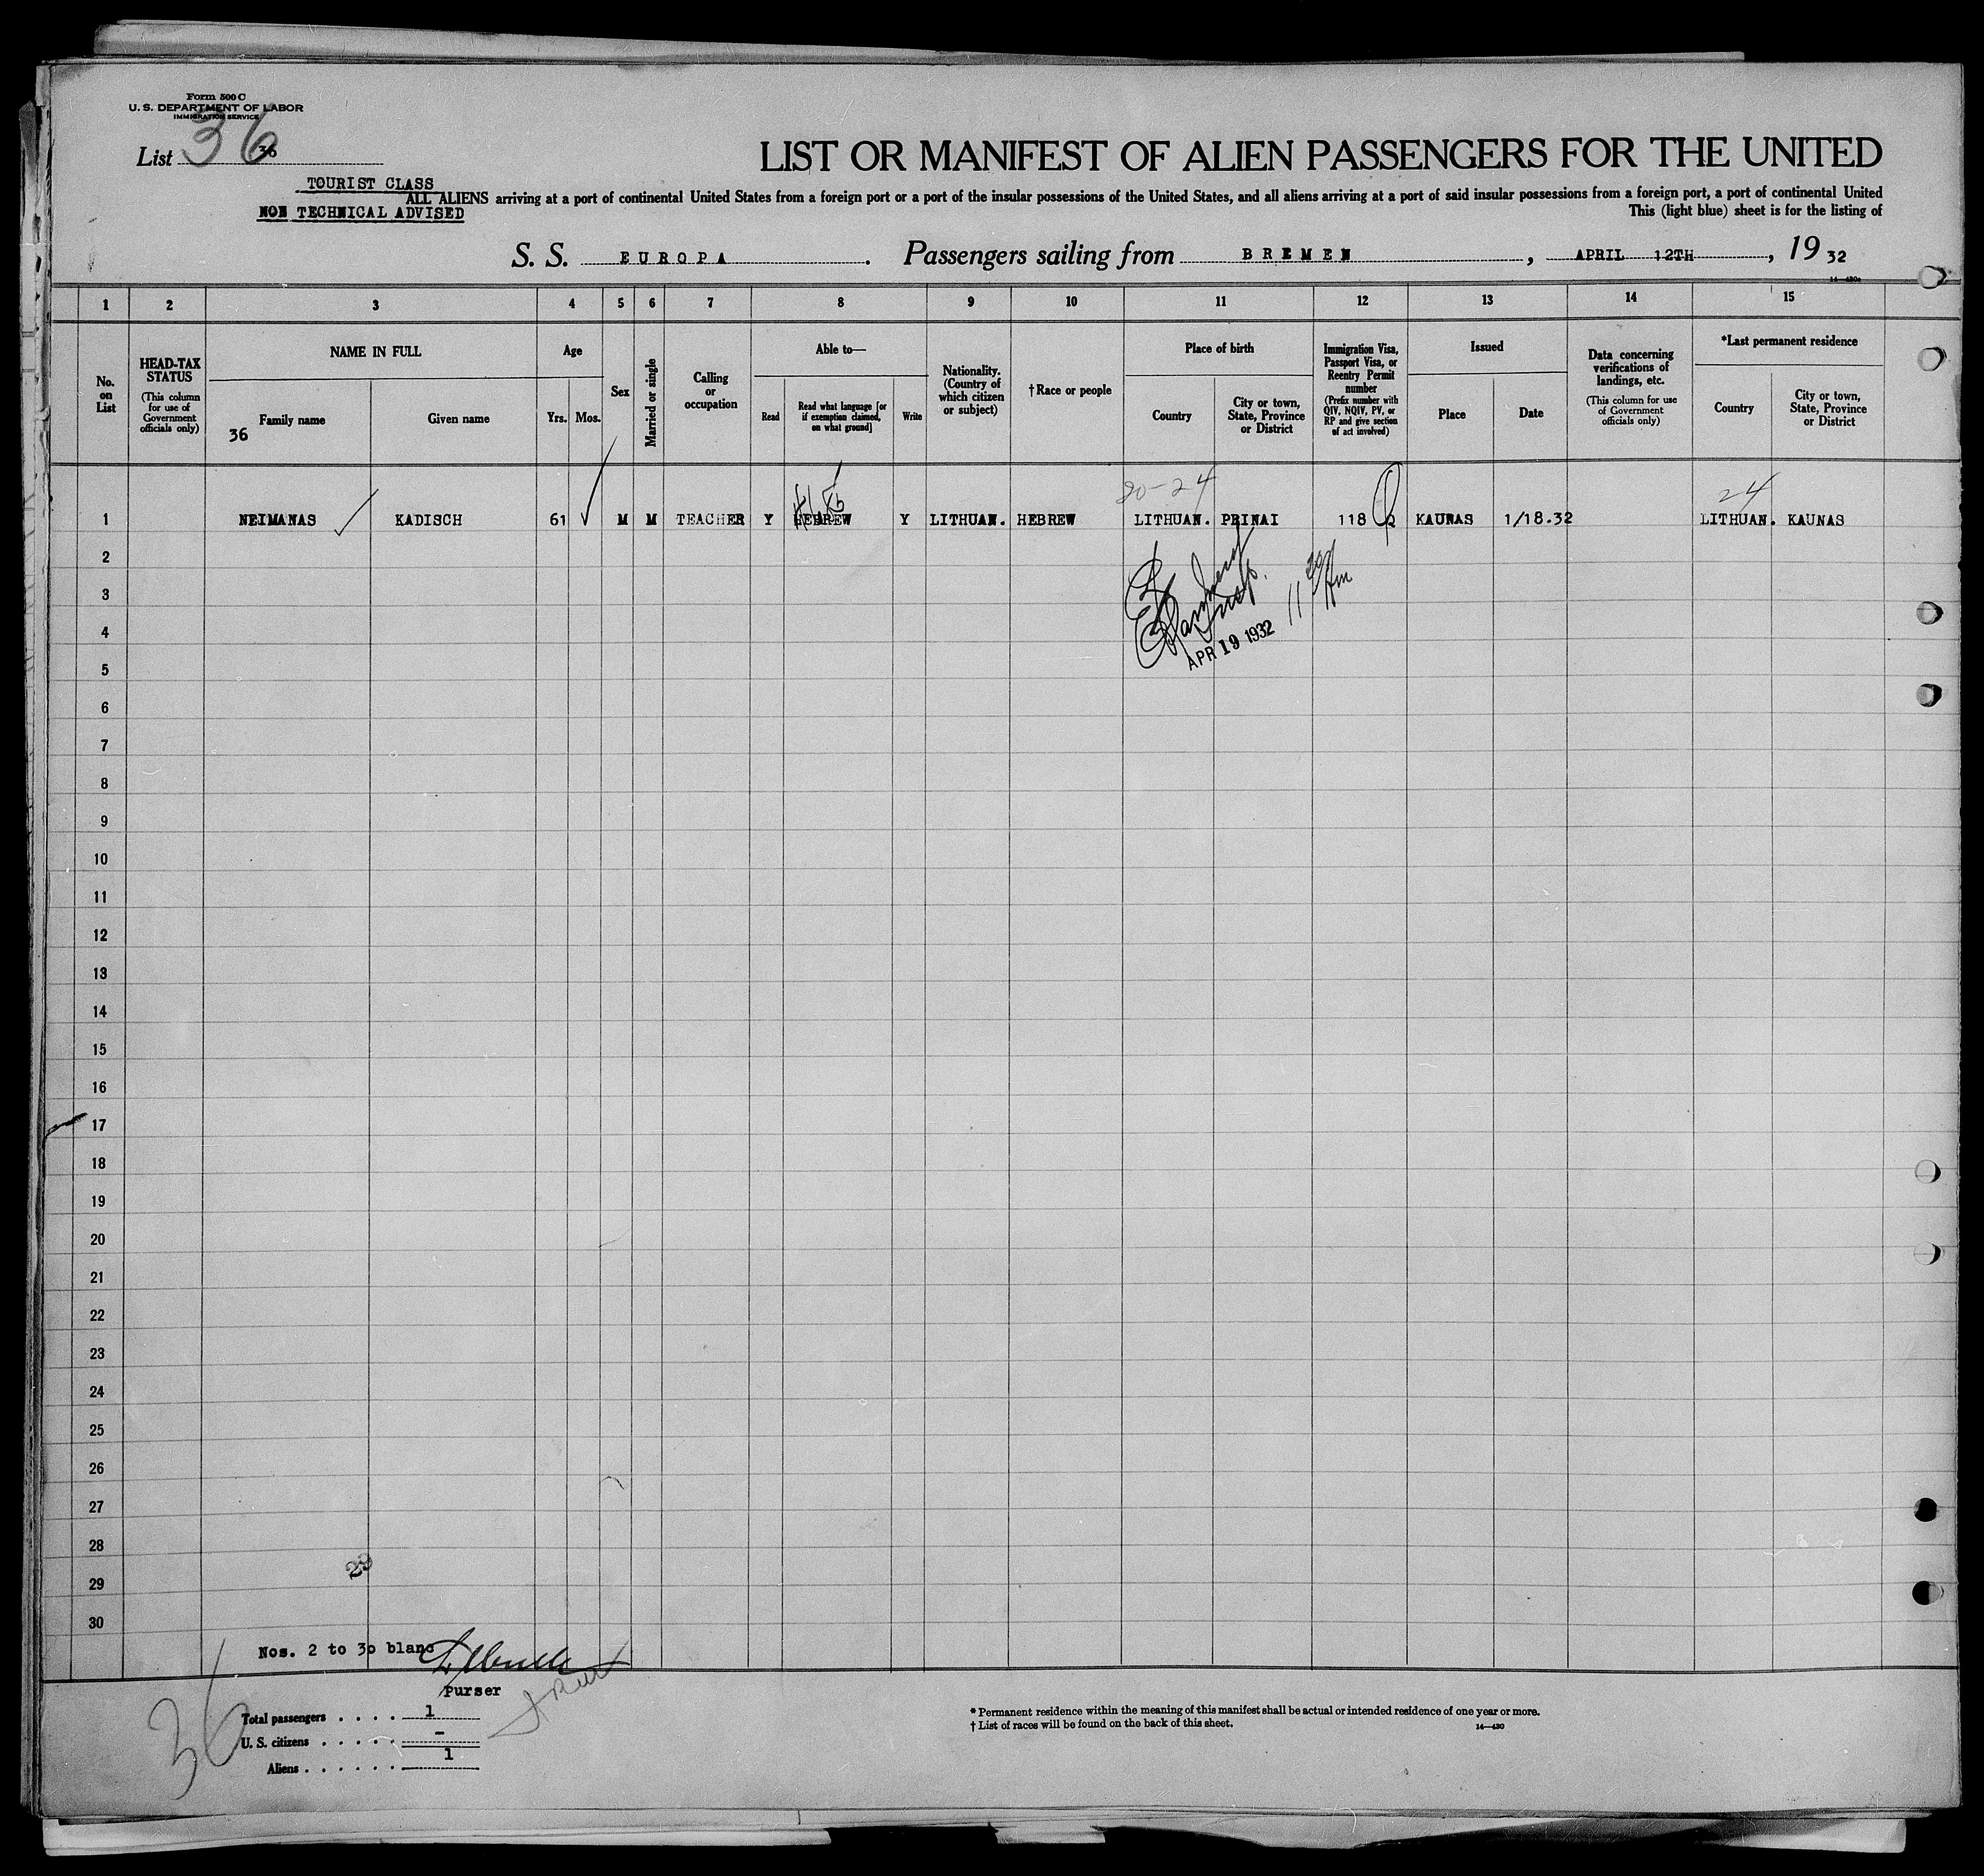 Form 500 C
U. S. DEPARTMENT OF LABOR
IMMIGRATION SERVICE
List 36
36
LIST OR MANIFEST OF ALIEN PASSENGERS FOR THE UNITED
TOURIST CLASS
ALL ALIENS arriving at a port of continental United States from a foreign port or a port of the insular possessions of the United States, and all aliens arriving at a port of said insular possessions from a foreign port, a port of continental United
NON TECHNICAL ADVISED
This (light blue) sheet is for the listing of
S. S. EUROPA. Passengers sailing from BREMEN, APRIL 12TH, 19 32
1 2 3 4 5 6 7 8 9 10 11 12 13 14 15
No. on List
HEAD-TAX STATUS
(This column for use of Government officials only)
NAME IN FULL
36 Family name
Given name
Age
Yrs. Mos.
Sex
Married or single
Calling or occupation
Able to—
Read
Read what language [or if exemption claimed, on what ground]
Write
Nationality. (Country of which citizen or subject)
† Race or people
Place of birth
Country
City or town, State, Province or District
Immigration Visa, Passport Visa, or Reentry Permit number
(Prefix number with QIV, NQIV, PV, or RP and give section of act involved)
Issued
Place
Date
Data concerning verifications of landings, etc.
(This column for use of Government officials only)
*Last permanent residence
Country
City or town, State, Province or District
14—430a
20-24
24
1 NEIMANAS KADISCH 61 M M TEACHER Y HEBREW Y LITHUAN. HEBREW LITHUAN. PRINAI 118 Q KAUNAS 1/18.32 LITHUAN. KAUNAS
2
3
Insp.
11 20 Am
4
APR 19 1932
5
6
7
8
9
10
11
12
13
14
15
16
17
18
19
20
21
22
23
24
25
26
27
28
23
29
30
Nos. 2 to 30 blanc
Purser
36
Total passengers . . . . 1
U. S. citizens . . . . . -
Aliens . . . . . . 1
* Permanent residence within the meaning of this manifest shall be actual or intended residence of one year or more.
† List of races will be found on the back of this sheet.
14—430